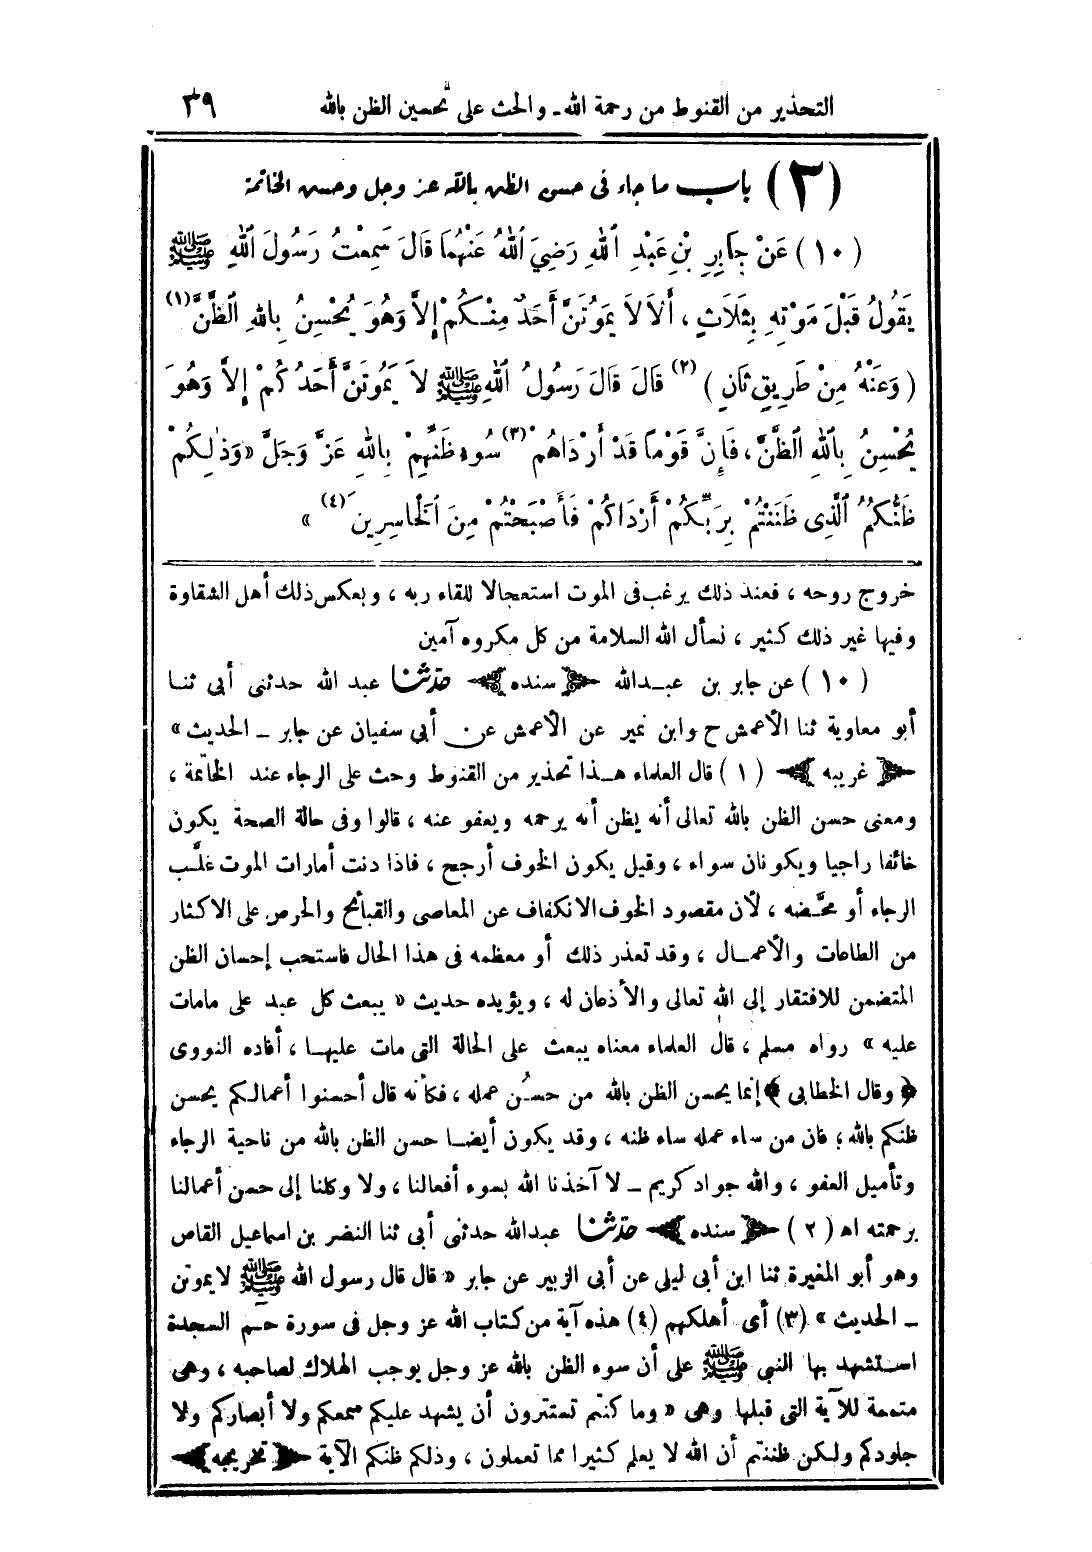 التحذير من القنوط من رحمة الله ـ والحث على تحسين الظن بالله ٣٩
(٣) باب ما جاء فى حسن الظن بالله عز وجل وحسن الخاتمة
(١٠) عَنْ جَابِرِ بْنِ عَبْدِ اللهِ رَضِيَ اللهُ عَنْهُمَا قَالَ سَمِعْتُ رَسُولَ اللهِ ﷺ
يَقُولُ قَبْلَ مَوْتِهِ بِثَلَاثٍ ، أَلَا لَا يَمُوتَنَّ أَحَدٌ مِنْكُمْ إِلَّا وَهُوَ يُحْسِنُ بِاللهِ الظَّنَّ (١)
(وَعَنْهُ مِنْ طَرِيقٍ ثَانٍ) (٢) قَالَ قَالَ رَسُولُ اللهِ ﷺ لَا يَمُوتَنَّ أَحَدُكُمْ إِلَّا وَهُوَ
يُحْسِنُ بِاللهِ الظَّنَّ ، فَإِنَّ قَوْمًا قَدْ أَرْدَاهُمْ (٣) سُوءُ ظَنِّهِمْ بِاللهِ عَزَّ وَجَلَّ «وَذٰلِكُمْ
ظَنُّكُمُ الَّذِى ظَنَنْتُمْ بِرَبِّكُمْ أَرْدَاكُمْ فَأَصْبَحْتُمْ مِنَ الْخَاسِرِينَ (٤) »
خروج روحه ، فعند ذلك يرغب فى الموت استعجالا للقاء ربه ، وبعكس ذلك أهل الشقاوة
وفيها غير ذلك كثير ، نسأل الله السلامة من كل مكروه آمين
(١٠) عن جابر بن عبد الله ﴿ سنده ﴾ حدّثنا عبد الله حدثنى أبى ثنا
أبو معاوية ثنا الأعمش ح وابن نمير عن الأعمش عن أبى سفيان عن جابر ـ الحديث »
﴿ غريبه ﴾ (١) قال العلماء هذا تحذير من القنوط وحث على الرجاء عند الخاتمة ،
ومعنى حسن الظن بالله تعالى أنه يظن أنه يرحمه ويعفو عنه ، قالوا وفى حالة الصحة يكون
خائفا راجيا ويكونان سواء ، وقيل يكون الخوف أرجح ، فاذا دنت أمارات الموت غلَّب
الرجاء أو محَّضه ، لأن مقصود الخوف الانكفاف عن المعاصى والقبائح والحرص على الاكثار
من الطاعات والأعمال ، وقد تعذر ذلك أو معظمه فى هذا الحال فاستحب إحسان الظن
المتضمن للافتقار إلى الله تعالى والأذعان له ، ويؤيده حديث « يبعث كل عبد على مامات
عليه » رواه مسلم ، قال العلماء معناه يبعث على الحالة التى مات عليها ، أفاده النووى
﴿ وقال الخطابى ﴾ إنما يحسن الظن بالله من حسُن عمله ، فكأنه قال أحسنوا أعمالكم يحسن
ظنكم بالله ؛ فان من ساء عمله ساء ظنه ، وقد يكون أيضا حسن الظن بالله من ناحية الرجاء
وتأميل العفو ، والله جواد كريم ـ لا آخذنا الله بسوء أفعالنا ، ولا وكلنا إلى حسن أعمالنا
برحمته اه (٢) ﴿ سنده ﴾ حدّثنا عبد الله حدثنى أبى ثنا النضر بن اسماعيل القاص
وهو أبو المغيرة ثنا ابن أبى ليلى عن أبى الزبير عن جابر « قال قال رسول الله ﷺ لايموتن
ـ الحديث » (٣) أى أهلكهم (٤) هذه آية من كتاب الله عز وجل فى سورة حم السجدة
استشهد بها النبى ﷺ على أن سوء الظن بالله عز وجل يوجب الهلاك لصاحبه ، وهى
متممة للآية التى قبلها وهى « وما كنتم تستترون أن يشهد عليكم سمعكم ولا أبصاركم ولا
جلودكم ولكن ظننتم أن الله لا يعلم كثيرا مما تعملون ، وذلكم ظنكم الآية ﴿ تخريجه ﴾